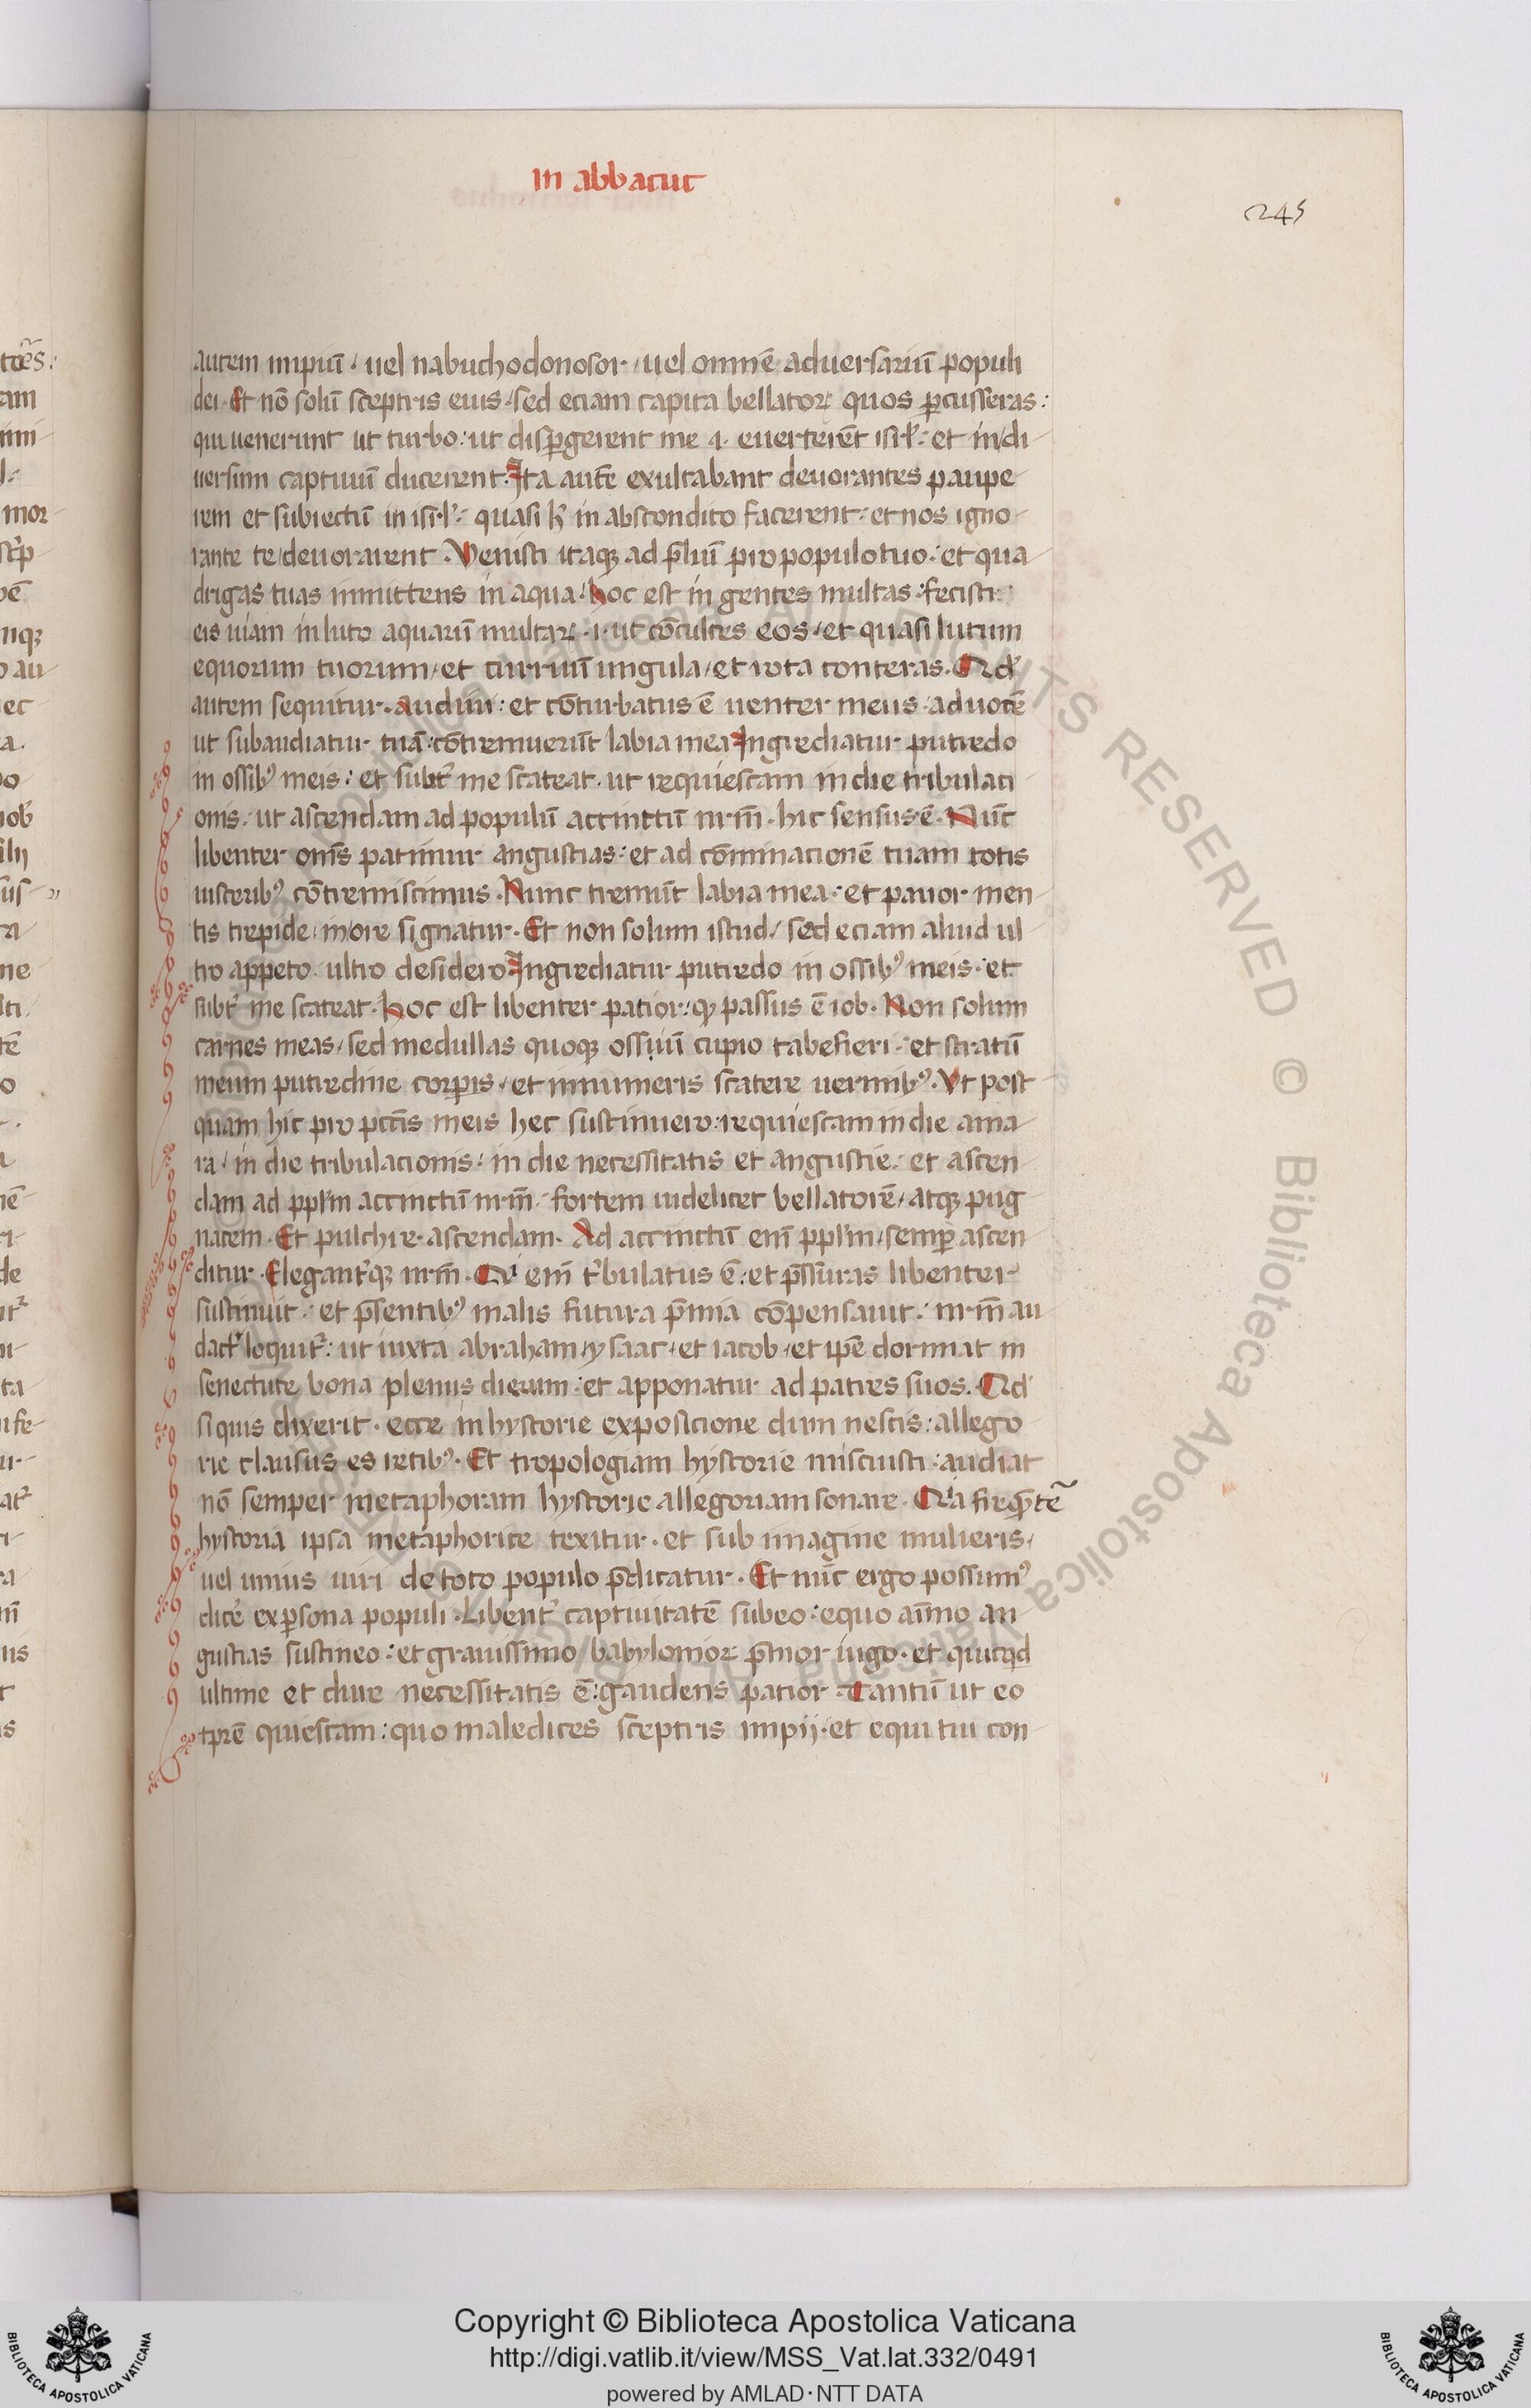 in abbacuc
245
autem impiū · uel nabuchodonosor · uel omnē aduersariū populi
dei · Et nō solū sceptris eius · sed eciam capita bellatoꝝ quos ꝑcusseras :
qui uenerunt ut turbo : ut disꝑgerent me ·i· euerterēt isrl̄ : et in di
uersum captiuū ducerent · Ita autē exultabant deuorantes paupe
rem et subiectū in isrl̄ : quasi h̄ in abscondito facerent : et nos igno
rante te / deuorarent · Venisti itaqꝫ ad p̄liū pro populo tuo : et qua
drigas tuas inmittens in aqua · hoc est in gentes multas : fecisti
eis uiam in luto aquarū multaꝝ ·i· ut cōculces eos · et quasi lutum
equorum tuorum · et curruū ungula · et rota conteras · Qd̕
autem sequitur · audiui : et cōturbatus ē uenter meus · a uoce
ut subaudiatur tuā : cōtremuerūt labia mea · Ingrediatur putredo
in ossibꝰ meis : et subt̕ me scateat · ut requiescam in die tribulati
onis · ut ascendam ad populū accinctū nr̄m · hic sensus ē · Nūc
libenter om̄s patimur angustias : et ad cōminacionē tuam totis
uisceribꝰ cōtremiscimus · Nunc tremūt labia mea : et pauor men
tis trepide in ore signatur · Et non solum istud / sed eciam aliud ul
tro appeto · ultro desidero · Ingrediatur putredo in ossibꝰ meis · et
subt̕ me scateat · hoc est libenter patior · qꝫ passus ē iob · Non solum
carnes meas · sed medullas quoqꝫ ossium cupio tabefieri · et stratū
meum putredine corꝑis · et innumeris scatere uermibꝰ · Vt post
quam hic pro pctīs meis hec sustinuero : requiescam in die ama
ra / in die tribulacionis / in die necessitatis et angustie : et ascen
dam ad pplm accinctū nr̄m · fortem uidelicet bellatorē · atqꝫ pug
nacem · Et pulchre · ascendam · Ad accinctū eni̅ pplm / semꝑ ascen
ditur · Elegant̕qꝫ nr̄m · Qi eni̅ t̕bulatus ē : et p̄ssuras libenter
sustinuit : et p̄sentibꝰ malis futura p̄mia cōpensauit : nr̄m au
dact̕ loquit̕ : ut iuxta abraham / ysaac · et iacob · et ipē dormiat in
senectute bona plenus dierum : et apponatur ad patres suos · Qd̕
si quis dixerit · ecce in hystorie exposicione dum nescis : allego
rie clausus es retibꝰ · Et tropologiam hystorie miscuisti : audiat
nō semper metaphoram hystorie allegoriam sonare · Qia freqētē
hystoria ipsa metaphorice texitur · et sub imagine mulieris /
uel unius uiri de toto populo p̄dicatur · Et nūc ergo possumꝰ
dice̕ ex ꝑsona populi · Libent̕ captiuitatē subeo : equo aīmo an
gustias sustineo : et grauissimo / babylonioꝝ p̄mor iugo · et quicqd
ultime et dure necessitatis ē : gaudens patior · Tantū ut eo
tp̄re quiescam : quo maledices sceptris impij · et equi tui con
Copyright © Biblioteca Apostolica Vaticana
http://digi.vatlib.it/view/MSS_Vat.lat.332/0491
powered by AMLAD · NTT DATA